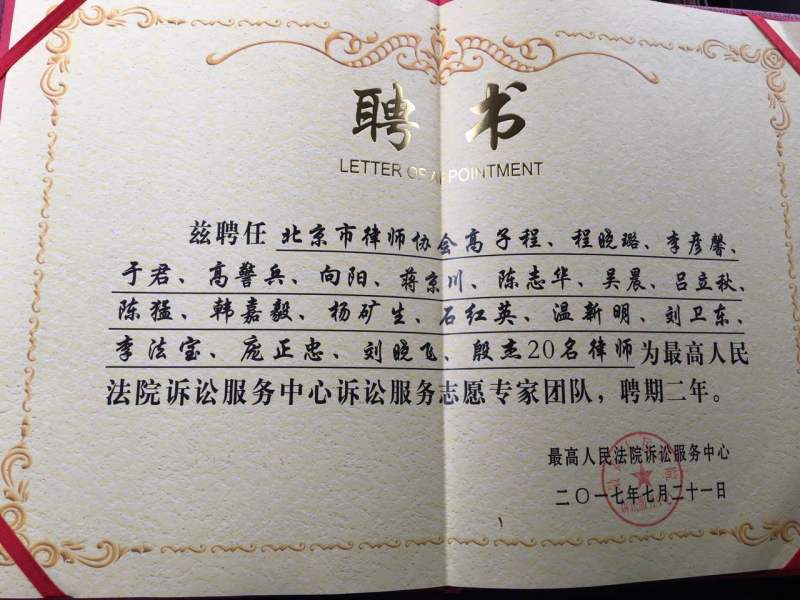 聘书
LETTER OF APPOINTMENT
兹聘任 北京市律师协会高子程、程晓璐、李彦馨、
于君、高警兵、向阳、蒋京川、陈志华、吴晨、吕立秋、
陈猛、韩嘉毅、杨矿生、石红英、温新明、刘卫东、
李法宝、庞正忠、刘晓飞、殷杰20名律师为最高人民
法院诉讼服务中心诉讼服务志愿专家团队，聘期二年。
最高人民法院诉讼服务中心
二〇一七年七月二十一日